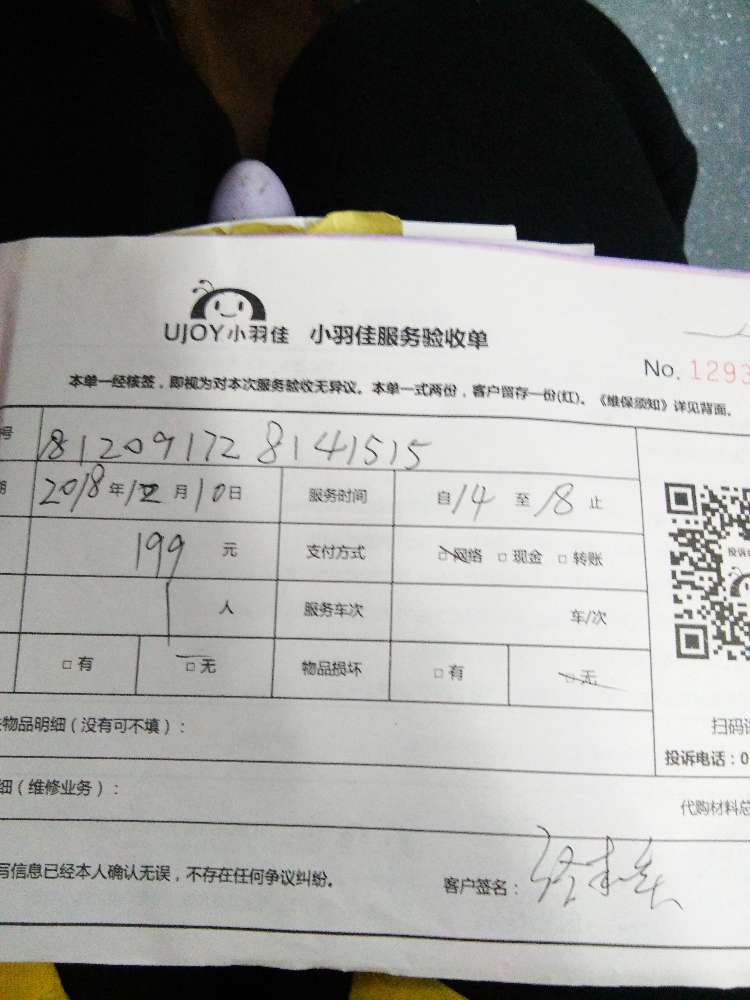 UJOY小羽佳 小羽佳服务验收单
No. 1293
本单一经核签，即视为对本次服务验收无异议。本单一式两份，客户留存一份(红)。《维保须知》详见背面。
号 812091728141515
期 2018年12月10日 服务时间 自14至18止
199元 支付方式 □网络 □现金 □转账
1人 服务车次 车/次
□有 □无 物品损坏 □有 □无
投诉
物品明细（没有可不填）：
扫码
投诉电话：0
细（维修业务）：
代购材料总
写信息已经本人确认无误，不存在任何争议纠纷。
客户签名：